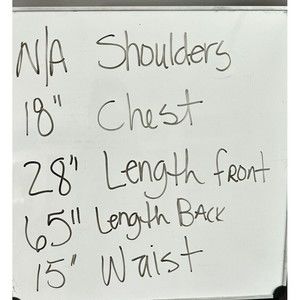 N/A Shoulders
18" Chest
28" Length Front
65" Length Back
15" Waist